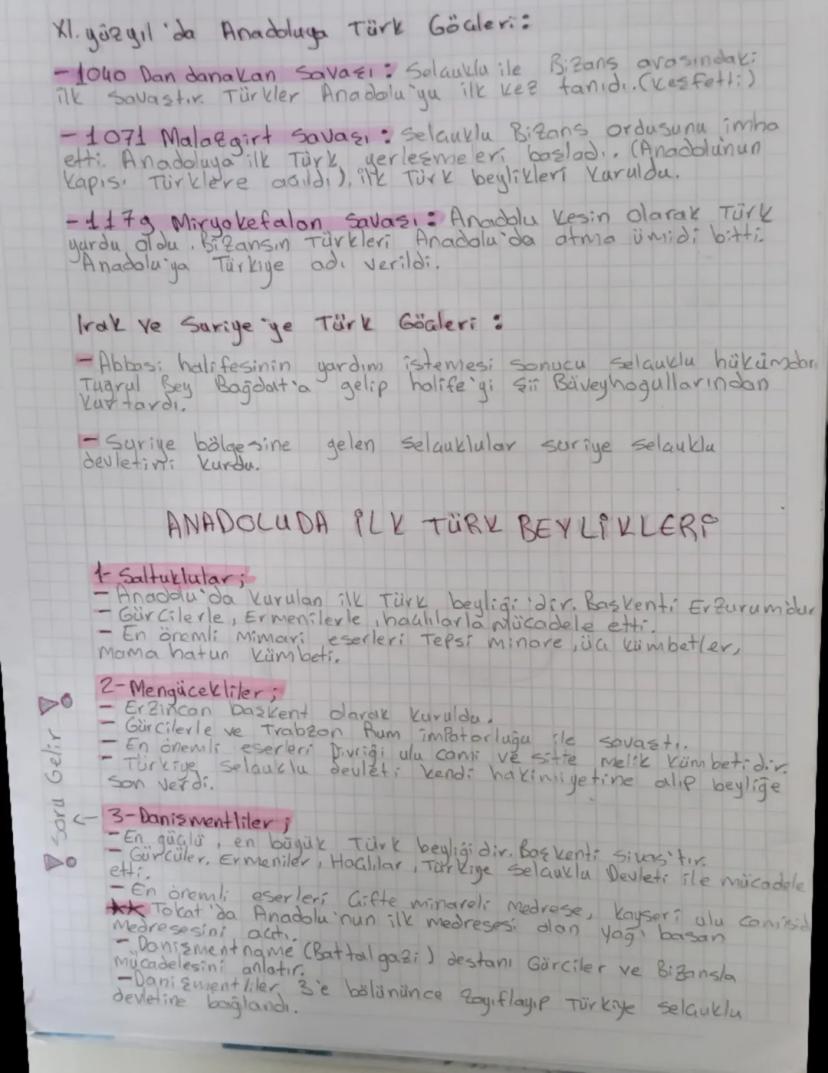 XI. yüzyıl'da Anadoluya Türk Göçleri:
-1040 Dandanakan Savaşı: Selçuklu ile Bizans arasındaki
ilk savaştır. Türkler Anadolu'yu ilk kez tanıdı. (keşfetti)
-1071 Malazgirt Savaşı: Selçuklu Bizans ordusunu imha
etti. Anadoluya ilk Türk yerleşmeleri başladı. (Anadolunun
kapısı Türklere açıldı), ilk Türk beylikleri kuruldu.
-1179 Miryokefalon Savaşı: Anadolu kesin olarak Türk
yurdu oldu. Bizansın Türkleri Anadolu'da atma ümidi bitti.
Anadolu'ya Türkiye adı verildi.
Irak ve Suriye'ye Türk Göçleri:
-Abbasi halifesinin yardım istemesi sonucu Selçuklu hükümdarı
Tuğrul Bey Bağdat'a gelip halife'yi Şii Büveyhoğullarından
kurtardı.
-Suriye bölgesine gelen Selçuklular Suriye Selçuklu
devletini kurdu.
ANADOLUDA İLK TÜRK BEYLİKLERİ
1-Saltuklular;
- Anadolu'da kurulan ilk Türk beyliği'dir. Başkenti Erzurumdur
- Gürcilerle, Ermenilerle, haçlılarla Mücadele etti.
- En önemli Mimari eserleri Tepsi minare, üç kümbetler,
Mama hatun kümbeti.
2-Mengücekliler;
- Erzincan başkent olarak kuruldu.
- Gürcilerle ve Trabzon Rum imparorluğu ile savaştı.
- En önemli eserleri Divriği ulu cami ve sitte Melik kümbetidir.
- Türkiye Selçuklu devleti kendi hakimiyetine alıp beyliğe
son verdi.
Soru Gelir
3-Danişmentliler;
-En güçlü, en büyük Türk beyliğidir. Başkenti Sivas'tır.
- Gürcüler, Ermeniler, Haçlılar, Türkiye Selçuklu Devleti ile mücadele
etti.
-En önemli eserleri Çifte minareli medrese, Kayseri ulu camisidir
** Tokat'da Anadolu'nun ilk medresesi olan yağı basan
Medresesini açtı.
- Danişmentname (Battalgazi) destanı Gürciler ve Bizansla
mücadelesini anlatır.
-Danişmentliler 3'e bölününce zayıflayıp Türkiye Selçuklu
devletine bağlandı.